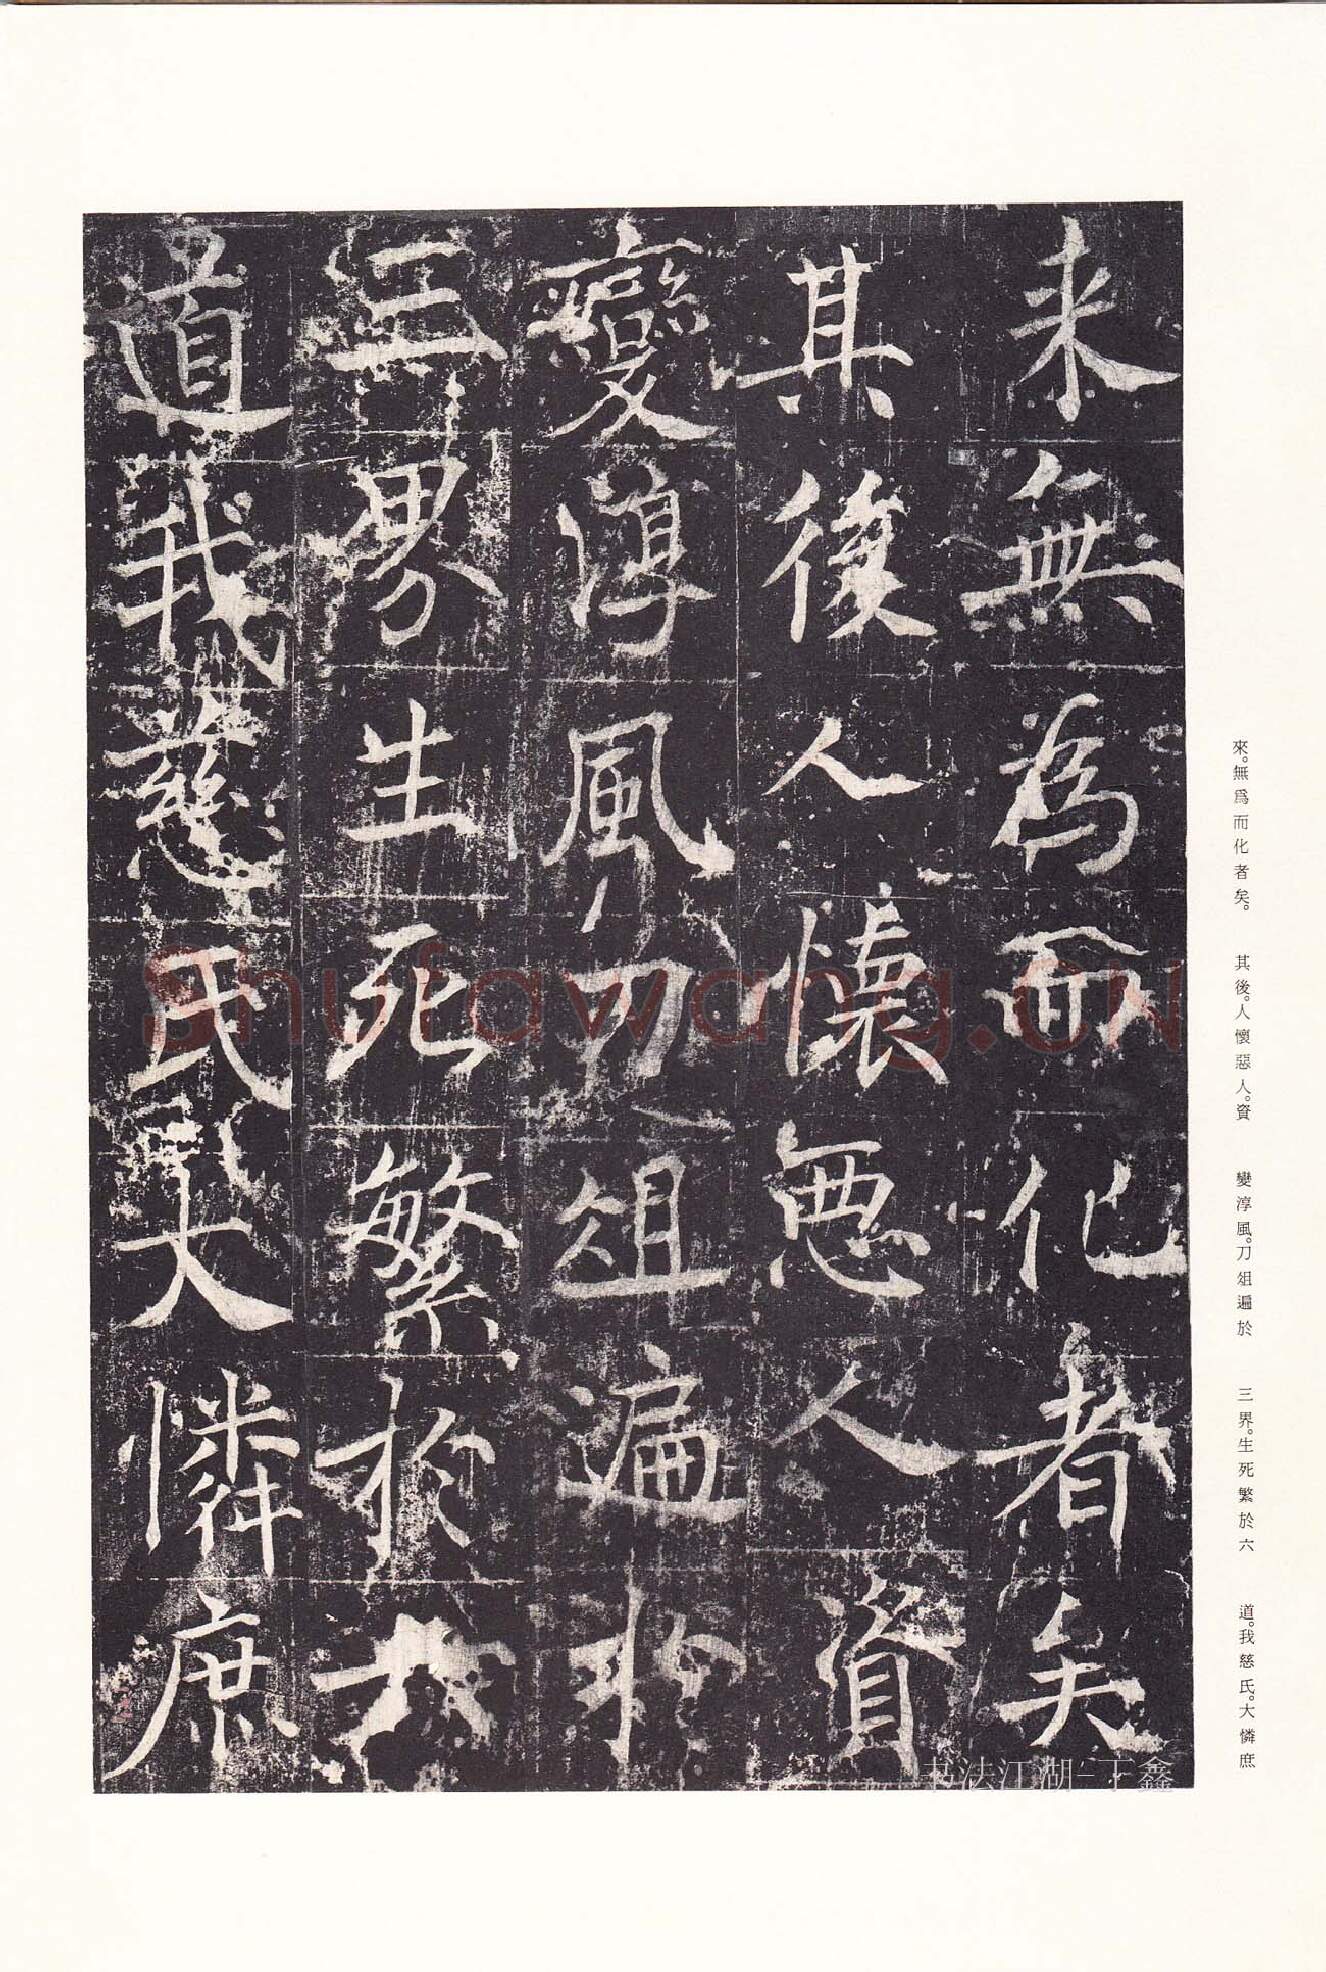 来無為而化者矣
其後人懐悪人資
變淳風刀俎遍於
三界生死繁於六
道我慈氏大憐庶
來。無爲而化者矣。
其後。人懷惡人。資
變淳風。刀俎遍於
三界。生死繁於六
道。我慈氏。大憐庶
shufawang.cn
书法江湖-丁鑫